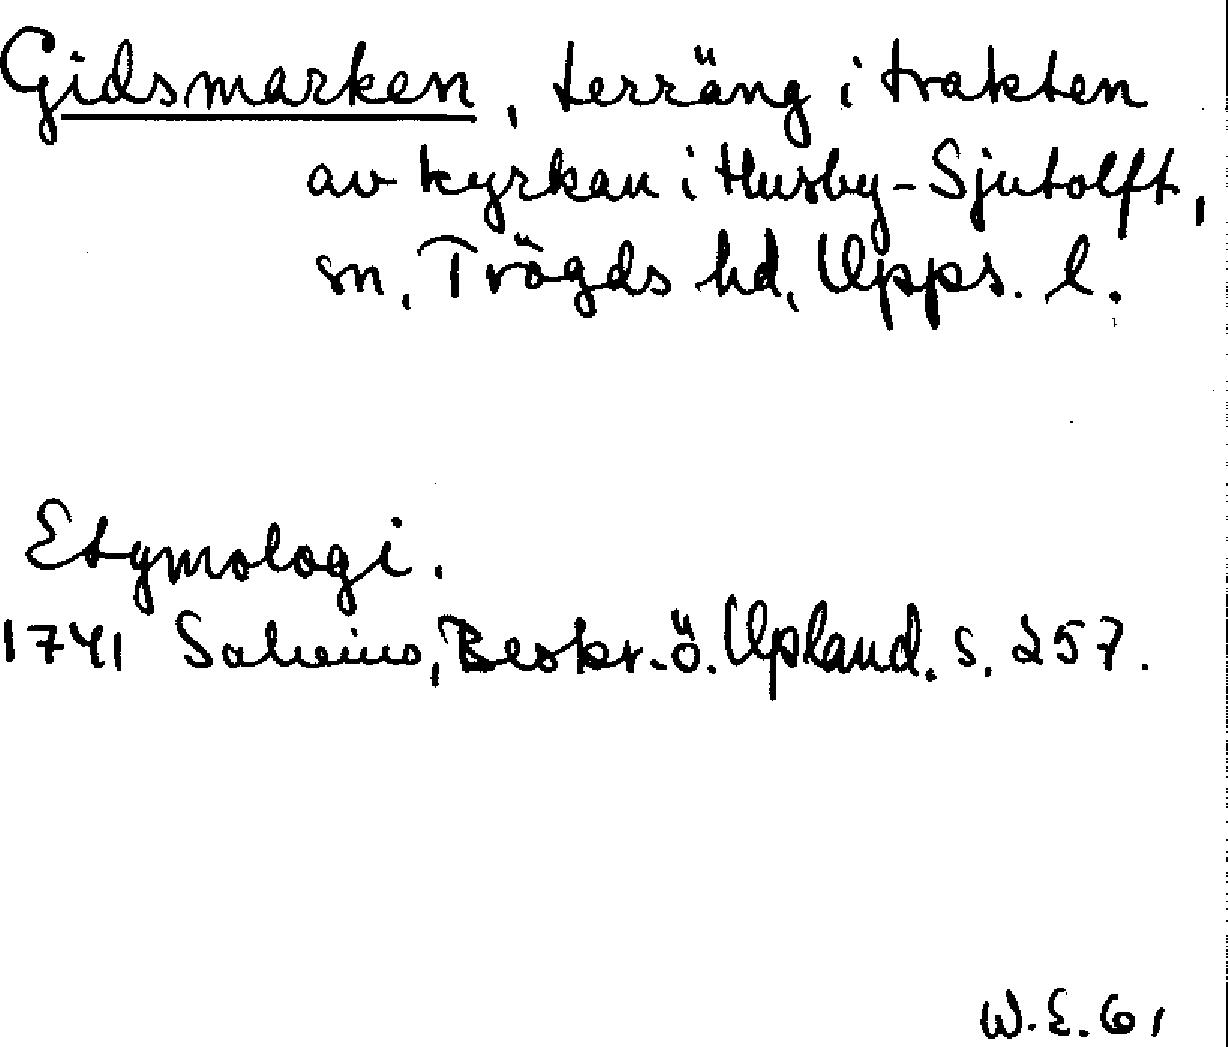 Gidsmarken, terräng i trakten
av kyrkan i Husby-Sjutolft,
sn, Trögds hd, Upps. l.
Etymologi.
1741 Salvius, Beskr. ö. Upland. s. 257.
W.E. 61